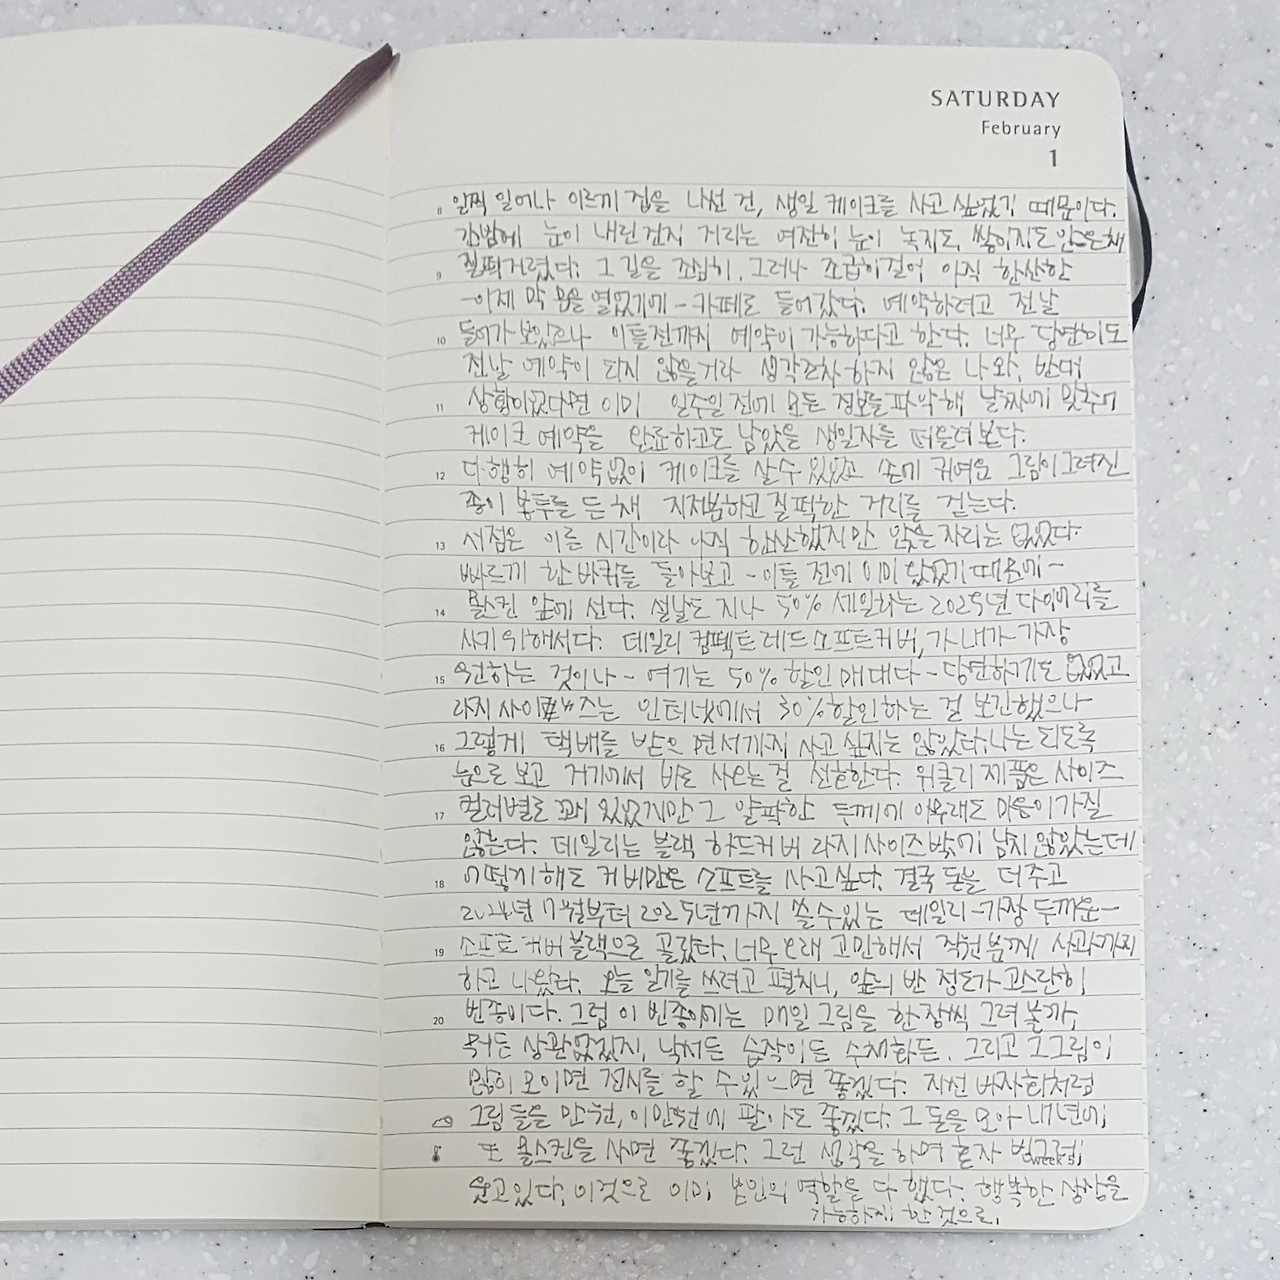 SATURDAY
February
1
8 일찍 일어나 이르게 집을 나선 건, 생일 케이크를 사고 싶었기 때문이다.
간밤에 눈이 내린건지 거리는 여전히 눈이 녹지도, 쌓이지도 않은채
9 질퍽거렸다. 그 길을 조심히, 그러나 조급히 걸어 아직 한산한
-이제 막 문을 열었기에- 카페로 들어갔다. 예약하려고 전날
10 들어가 보았으나 이틀전까지 예약이 가능하다고 한다. 너무 당연히도
전날 예약이 되지 않을거라 생각조차 하지 않은 나와, 반대
11 상황이었다면 이미 일주일 전에 모든 정보를 파악해 날짜에 맞추어
케이크 예약을 완료하고도 남았을 생일자를 떠올려 본다.
12 다행히 예약없이 케이크를 살 수 있었고 손에 귀여운 그림이 그려진
종이 봉투를 든 채 지저분하고 질퍽한 거리를 걷는다.
13 서점은 이른 시간이라 아직 한산했지만 앉을 자리는 없었다.
빠르게 한바퀴를 돌아보고 -이틀 전에 이미 왔었기 때문에-
14 몰스킨 앞에 선다. 설날도 지나 50% 세일하는 2025년 다이어리를
사기 위해서다. 데일리 컴팩트 레드 소프트커버, 가 내가 가장
15 원하는 것이나 - 여기는 50% 할인 매대다 - 당연하게도 없었고
라지 사이즈는 인터넷에서 30% 할인하는 걸 보긴했으나
16 그렇게 택배를 받으면서까지 사고 싶지는 않았다. 나는 되도록
눈으로 보고 거기에서 바로 사오는 걸 선호한다. 위클리 제품은 사이즈
17 컬러별로 꽤 있었지만 그 얄팍한 두께에 아무래도 마음이 가질
않는다. 데일리는 블랙 하드커버 라지 사이즈 밖에 남지 않았는데
18 어떻게 해도 커버만은 소프트를 사고 싶다. 결국 돈을 더 주고
2024년 7월부터 2025년까지 쓸 수 있는 데일리 -가장 두꺼운-
19 소프트 커버 블랙으로 골랐다. 너무 오래 고민해서 직원분께 사과까지
하고 나왔다. 오늘 일기를 쓰려고 펼치니, 앞의 반 정도가 고스란히
20 빈종이다. 그럼 이 빈종이에는 매일 그림을 한 장씩 그려 볼까,
뭐든 상관없겠지, 낙서든 습작이든 수채화든. 그리고 그 그림이
많이 모이면 전시를 할 수 있으면 좋겠다. 지선 바자회처럼
그림들을 만 원, 이만원에 팔아도 좋겠다. 그 돈을 모아 내년에
또 몰스킨을 사면 좋겠다. 그런 생각을 하며 혼자 빙그레
week 5
웃고있다. 이것으로 이미 본인의 역할을 다 했다. 행복한 상상을
가능하게 한 것으로.